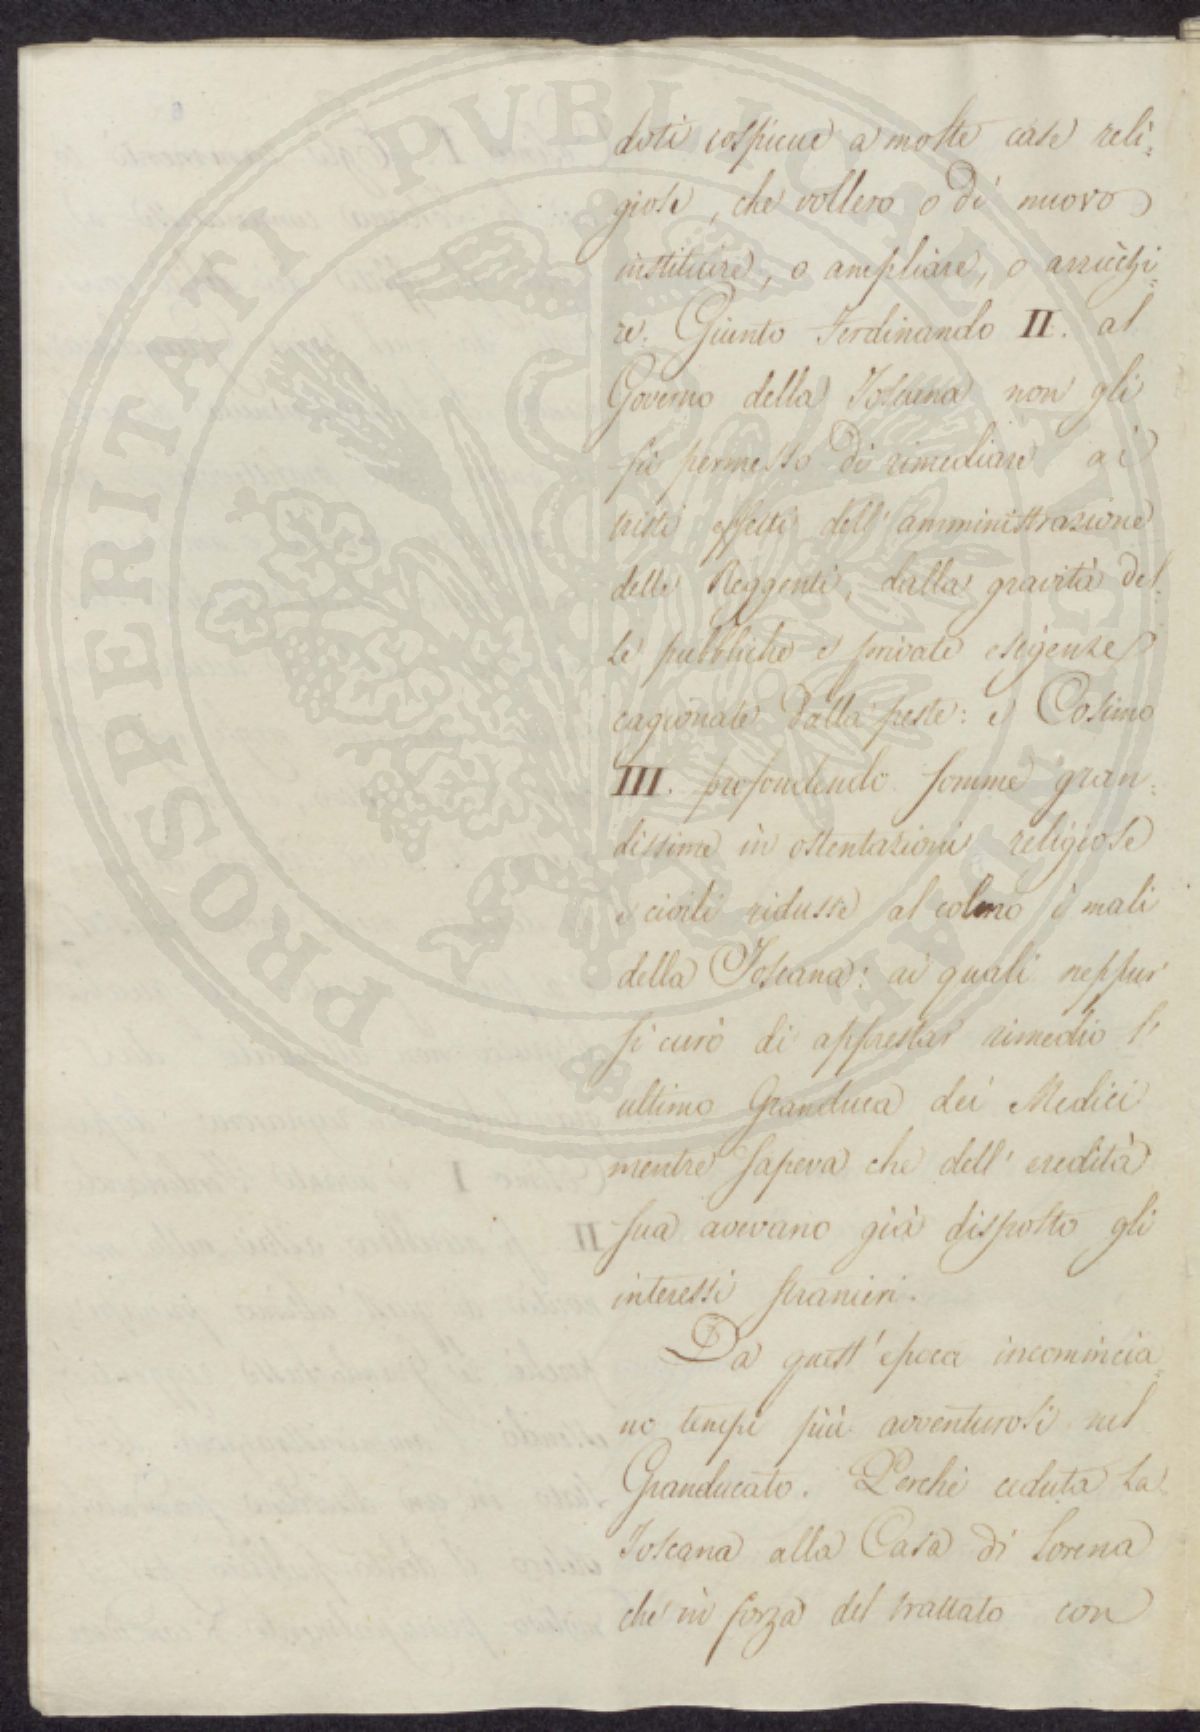 doti cospicue a molte case reli=
giose, che vollero o di nuovo
instituire, o ampliare, o arricchi=
re. Giunto Ferdinando II. al
Governo della Toscana non gli
fù permesso di rimediare ai
tristi effetti dell'amministrazione
delle Reggenti, dalla gravità del=
le pubbliche e private esigenze
cagionate dalla peste: e Cosimo
III. profondendo somme gran=
dissime in ostentazioni religiose
e civili ridusse al colmo i mali
della Toscana: ai quali neppur
si curò di apprestar rimedio l'
ultimo Granduca dei Medici
mentre sapeva che dell'eredità
sua avevano già disposto gli
interessi stranieri.
Da quest'epoca incomincia=
no tempi più avventurosi nel
Granducato. Perchè ceduta la
Toscana alla Casa di Lorena
che in forza del trattato con
PROSPERITATI PVBLICAE AVGENDAE